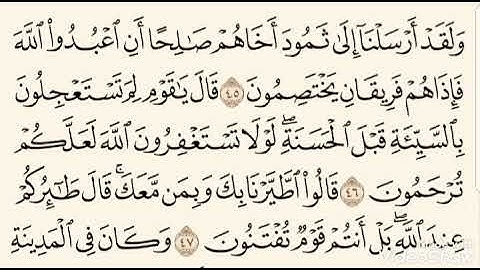 وَلَقَدْ أَرْسَلْنَآ إِلَىٰ ثَمُودَ أَخَاهُمْ صَٰلِحًا أَنِ ٱعْبُدُوا۟ ٱللَّهَ
فَإِذَا هُمْ فَرِيقَانِ يَخْتَصِمُونَ ٤٥ قَالَ يَٰقَوْمِ لِمَ تَسْتَعْجِلُونَ
بِٱلسَّيِّئَةِ قَبْلَ ٱلْحَسَنَةِۖ لَوْلَا تَسْتَغْفِرُونَ ٱللَّهَ لَعَلَّكُمْ
تُرْحَمُونَ ٤٦ قَالُوا۟ ٱطَّيَّرْنَا بِكَ وَبِمَن مَّعَكَۚ قَالَ طَٰٓئِرُكُمْ
عِندَ ٱللَّهِۖ بَلْ أَنتُمْ قَوْمٌ تُفْتَنُونَ ٤٧ وَكَانَ فِى ٱلْمَدِينَةِ